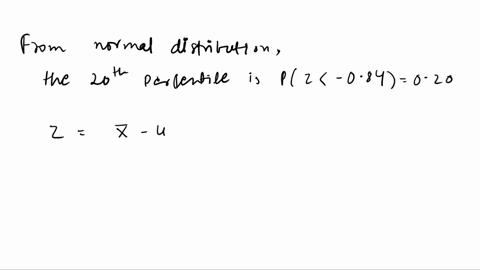 From normal distribution,
the 20th percentile is P(Z < -0.84) = 0.20
Z = x̄ - u